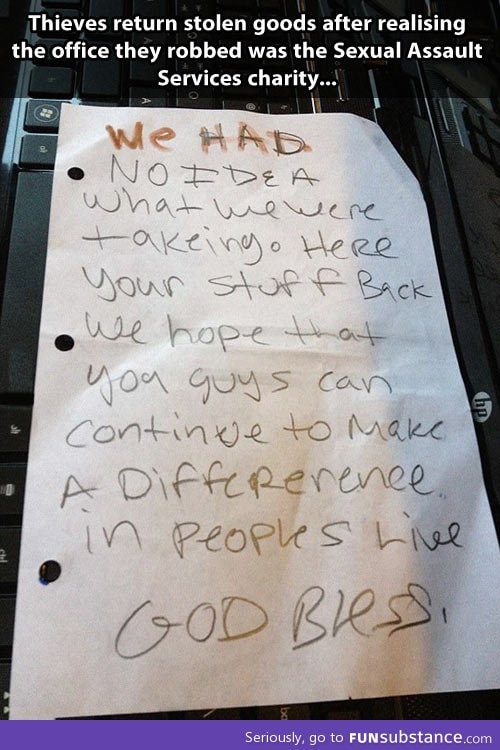 Thieves return stolen goods after realising
the office they robbed was the Sexual Assault
Services charity...
We HAD
NO IDEA
what we were
takeing. Here
your stuff Back
we hope that
you guys can
continue to Make
A Differerence.
in peoples Live
GOD Bless.
hp
Seriously, go to FUNsubstance.com